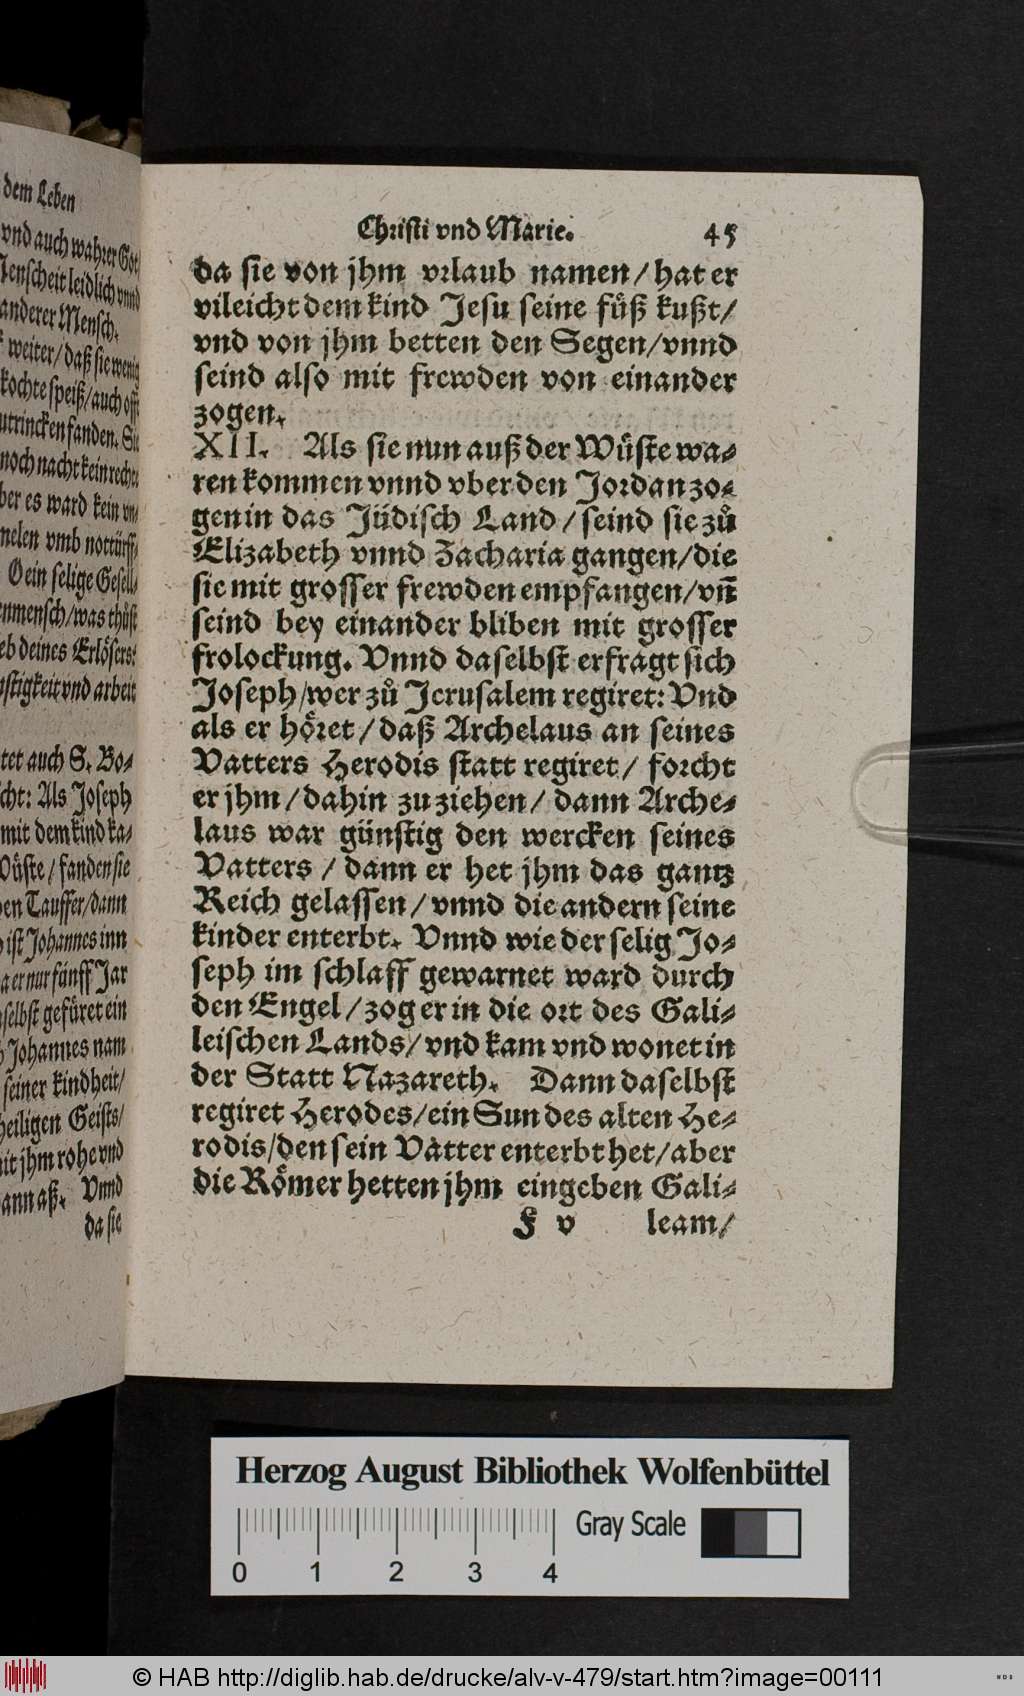 dem Leben
vnd auch wahrer Got
Menscheit leidlich vnnd
anderer Mensch.
weiter/ daß sie wenig
kochte speiß/ auch offt
zutrincken fanden. Sie
noch nacht kein rechte
ber es ward kein vn-
melen vmb nottürff-
O ein selige Gesell-
enmensch/ was thůst
eb deines Erlösers:
stigkeit vnd arbeit
tet auch S. Bo-
cht: Als Joseph
mit dem kind ka-
Wüste/ fanden sie
en Tauffer/ dann
ist Johannes inn
a er nur fünff Jar
selbst gefüret ein
Johannes nam
seiner kindheit/
heiligen Geists/
mit jhm rohe vnd
dann aß. Vnnd
da sie
Christi vnd Marie. 45
da sie von jhm vrlaub namen/ hat er
vileicht dem kind Jesu seine füß kußt/
vnd von jhm betten den Segen/ vnnd
seind also mit frewden von einander
zogen.
XII. Als sie nun auß der Wüste wa-
ren kommen vnnd vber den Jordan zo-
gen in das Jüdisch Land/ seind sie zů
Elizabeth vnnd Zacharia gangen/ die
sie mit grosser frewden empfangen/ vñ
seind bey einander bliben mit grosser
frolockung. Vnnd daselbst erfragt sich
Joseph/ wer zů Jerusalem regiret: Vnd
als er höret/ daß Archelaus an seines
Vatters Herodis statt regiret/ forcht
er jhm/ dahin zu ziehen/ dann Arche-
laus war günstig den wercken seines
Vatters/ dann er het jhm das gantz
Reich gelassen/ vnnd die andern seine
kinder enterbt. Vnnd wie der selig Jo-
seph im schlaff gewarnet ward durch
den Engel/ zog er in die ort des Gali-
leischen Lands/ vnd kam vnd wonet in
der Statt Nazareth. Dann daselbst
regiret Herodes/ ein Sun des alten He-
rodis/ den sein Vatter enterbt het/ aber
die Römer hetten jhm eingeben Gali-
F v leam/
Herzog August Bibliothek Wolfenbüttel
Gray Scale
0 1 2 3 4
© HAB http://diglib.hab.de/drucke/alv-v-479/start.htm?image=00111